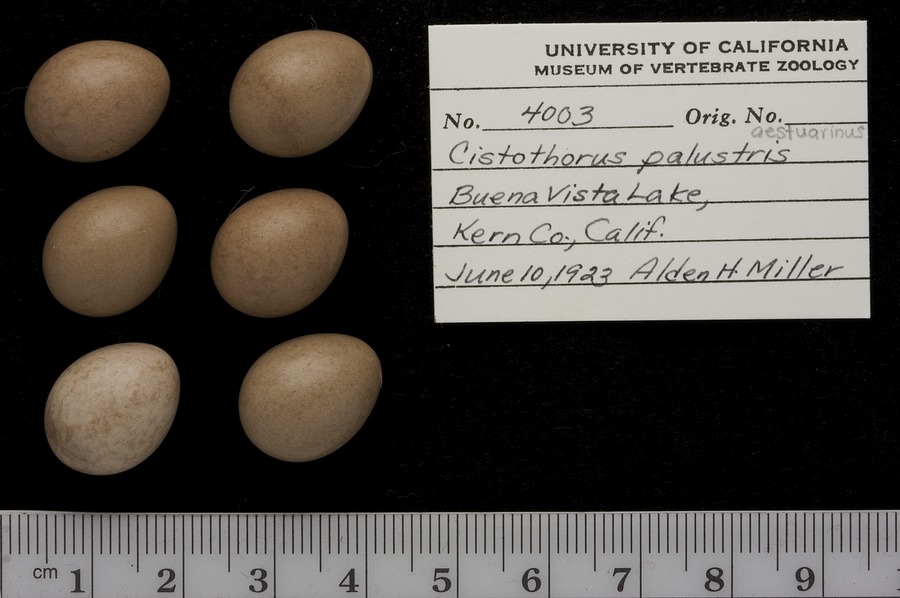 UNIVERSITY OF CALIFORNIA
MUSEUM OF VERTEBRATE ZOOLOGY
No. 4003 Orig. No.
aestuarinus
Cistothorus palustris
Buena Vista Lake,
Kern Co., Calif.
June 10, 1923 Alden H. Miller
cm 1 2 3 4 5 6 7 8 9 1